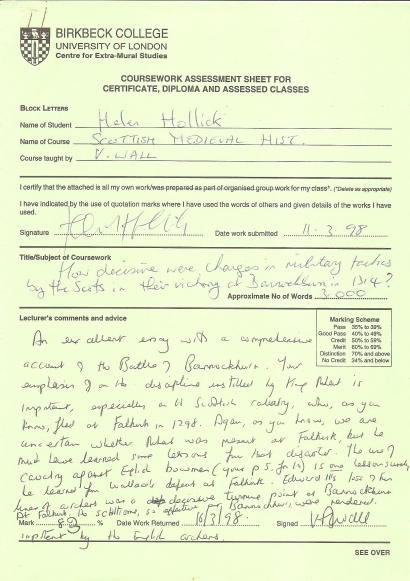 BIRKBECK COLLEGE
UNIVERSITY OF LONDON
Centre for Extra-Mural Studies
COURSEWORK ASSESSMENT SHEET FOR
CERTIFICATE, DIPLOMA AND ASSESSED CLASSES
BLOCK LETTERS
Name of Student Helen Hollick
Name of Course SCOTTISH MEDIEVAL HIST.
Course taught by V. WALL
I certify that the attached is all my own work/was prepared as part of organised group work for my class*. (*Delete as appropriate)
I have indicated by the use of quotation marks where I have used the words of others and given details of the works I have
used.
Signature Date work submitted 11.3.98
Title/Subject of Coursework
How decisive were changes in military tactics
by the Scots in their victory at Bannockburn in 1314?
Approximate No of Words 3.000
Lecturer's comments and advice
Marking Scheme
Pass 35% to 39%
Good Pass 40% to 49%
Credit 50% to 59%
Merit 60% to 69%
Distinction 70% and above
No Credit 34% and below
An excellent essay with a comprehensive
account of the Battle of Bannockburn. Your
emphasis on the discipline instilled by King Robert is
important, especially on the Scottish cavalry, who, as you
know, fled at Falkirk in 1298. Again, as you know, we are
uncertain whether Robert was present at Falkirk, but he
must have learned some lessons from that disaster. The use of
cavalry against English bowmen (your p 5, fn 10) is one lesson surely
he learned from Wallace's defeat at Falkirk. Edward II's loss of his
lines of archers was a decisive turning point at Bannockburn
At Falkirk, the schiltrons, so effective for Bannockburn, were rendered
Mark 82 % Date Work Returned 16/3/98. Signed V. Wall
impotent by the English archers.
SEE OVER